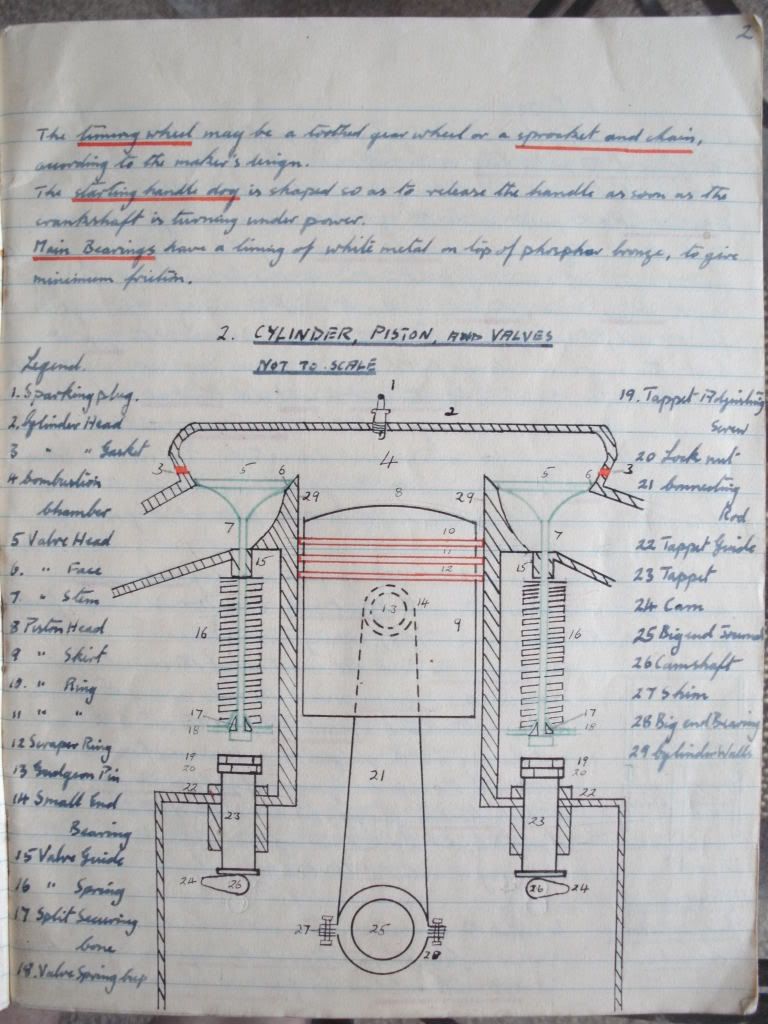 2
The timing wheel may be a toothed gear wheel or a sprocket and chain,
according to the maker's design.
The starting handle dog is shaped so as to release the handle as soon as the
crankshaft is turning under power.
Main Bearings have a lining of white metal on top of phosphor bronze, to give
minimum friction.
2. CYLINDER, PISTON, AND VALVES
NOT TO SCALE
Legend.
1. Sparking plug.
2. Cylinder Head
3 " " Gasket
4 Combustion
Chamber
5 Valve Head
6. " Face
7 " Stem
8 Piston Head
9 " Skirt
10. " Ring
11 " "
12 Scraper Ring
13 Gudgeon Pin
14 Small End
Bearing
15 Valve Guide
16 " Spring
17 Split Securing
Cone
18. Valve Spring Cup
19. Tappet Adjusting
Screw
20 Lock nut
21 Connecting
Rod
22 Tappet Guide
23 Tappet
24 Cam
25 Big end Journal
26 Camshaft
27 Shim
28 Big end Bearing
29 Cylinder Walls
1
2
3
4
3
5
6
5
6
29
8
29
7
7
10
11
12
15
15
13
14
9
16
16
17
18
17
18
19
20
19
20
21
22
22
23
23
24
26
26
24
27
25
28